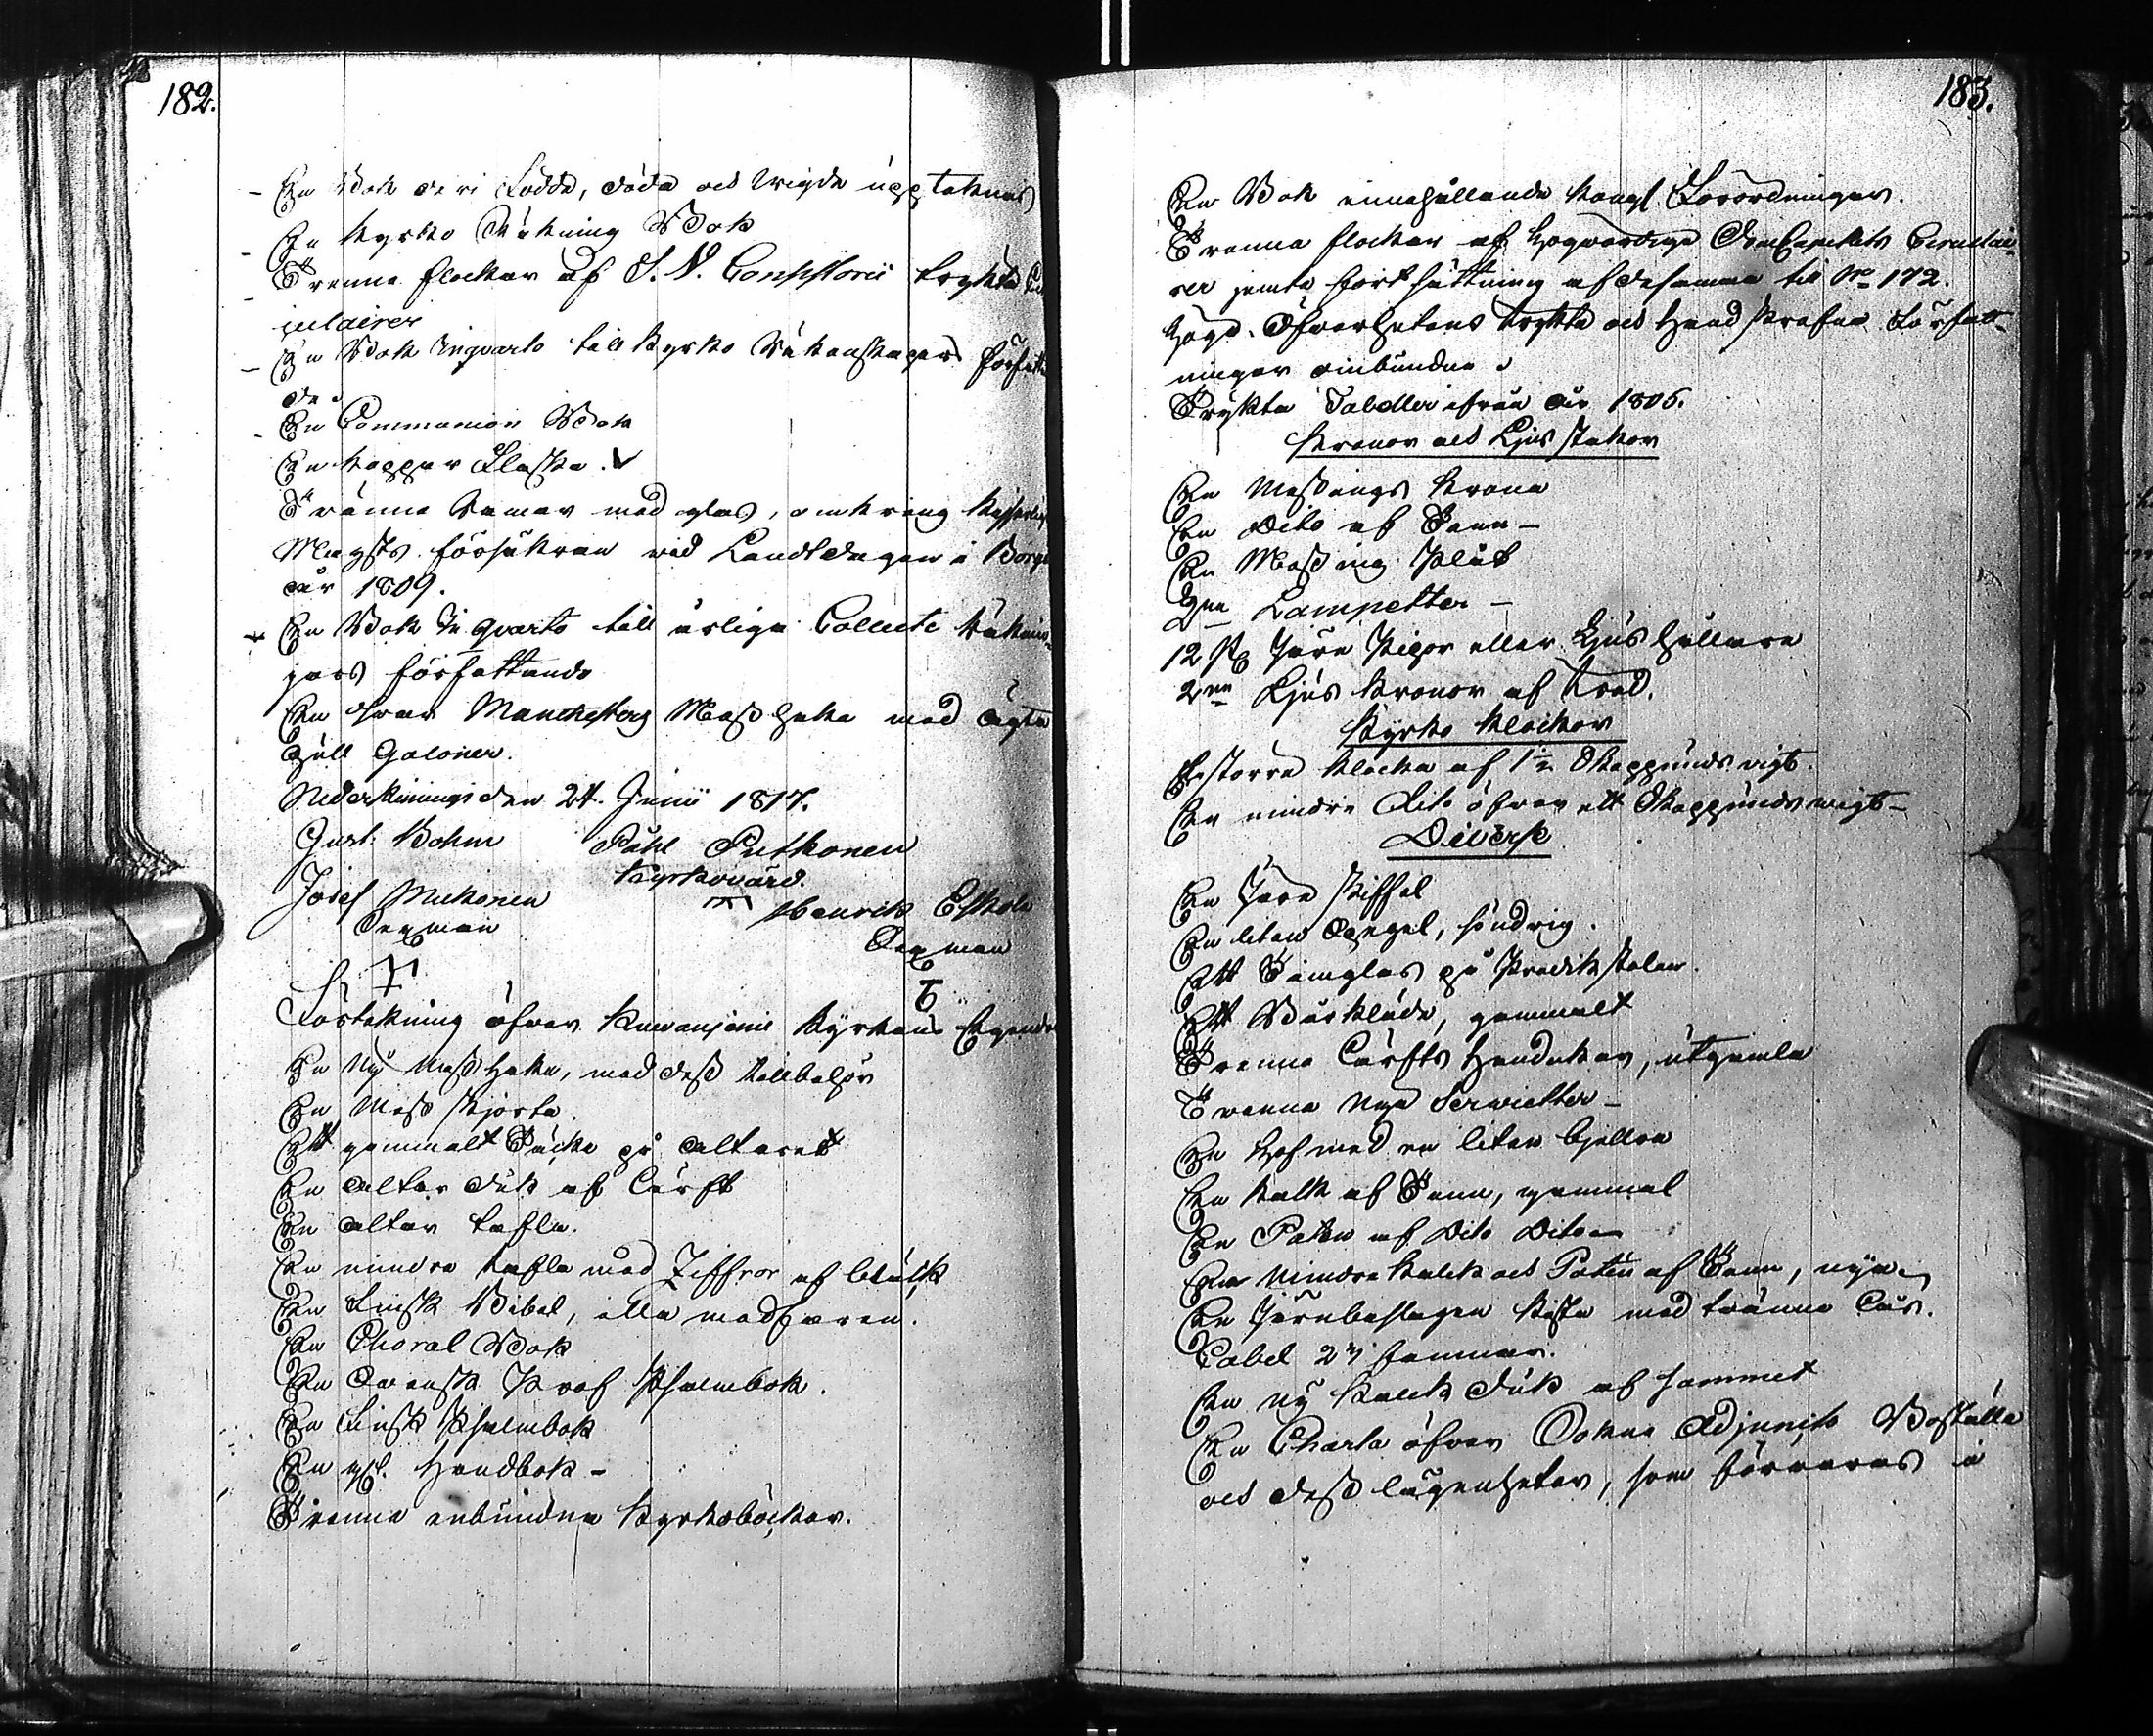 182.
En Bok deri Födde, döde och Wigde upptecknas
En Kyrko Räkning Bok
Trenne flockar af S. V. Consistorii tryckta Cir
culairer
En Bok Inqvarto till Kyrko Räkenskapers författan
de
En Communion Bok
En koppar Flaska.
Tvänne Ramar med glas, omkring Kejserlige
Maysts försäkran vid Landtdagen i Borgå
år 1809.
En Bok in qvarto till årlige Collecte Räknin
gars författande
En svart Manchesters Mässhake med ägta
Gull Galoner.
Nederkiminge den 24. Junii 1817.
Gust. Bohm Påhl Puthonen
Kyrkovärd.
Josef Mukonen Henrik Eskola
Sexman Sexman
Förtekning öfver Kuivaniemi Kyrkans Egendom
En Ny Mässhake, med dess tillbehör
En Mess skjorta.
Ett gammalt Täcke på altaret
En altar duk af Lärft
En altar tafla.
En mindre tafla med Ziffror af bläck
En Finsk Bibel, illa medfaren.
En Choral Bok
En Svensk Prof Psalmbok.
En Finsk Psalmbok
En Handbok -
Trenne inbundna Kyrkoböcker.
183.
En Bok innehållande Kongl. Förordningar.
Trenne flockar af Högvördige DomCapitlets Circulai
rer jemte fortsättning af desamma till No 172.
Höga Öfverhetens tryckta och Handskrefne Författ-
ningar oinbundne
Tryckta Tabeller ifrån år 1805.
Kronor och Ljusstakar
En Messings Krona
En Dito af Tenn -
En Messing Plåt
Lampetter -
12 st Järn Pigor eller Ljushållare
2ne Ljus kronor af träd.
Kyrko Klockor
En större klocka af 1½ Skeppunds vigt.
En mindre Dito öfver ett Skeppunds vigt -
Diverse
En Järn skiffel
En liten Spegel, söndrig.
Ett Timglas på Predikstolen.
Ett Bårkläde, gammalt
Trenne Lärfts Handukar, utgamla
Tvenne Nya Servietter -
En Haf med en liten bjellra
En Kalk af Tenn, gammal
En Paten af Dito Dito -
En Mindre Kalk och Paten af Tenn, nya
En Järnbeslagen Kista med tvänne Lås.
En ny Kalk duk af sammet
En Charta öfver Adjuncts Boställe
och dess lägenheter, som förvaras i